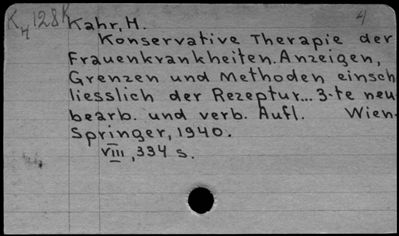 K₄128K Kahr, H. 4
Konservative Therapie der
Frauenkrankheiten. Anzeigen,
Grenzen und Methoden einsch
liesslich der Rezeptur... 3-te neu
bearb. und verb. Aufl. Wien-
Springer, 1940.
VIII, 334 s.